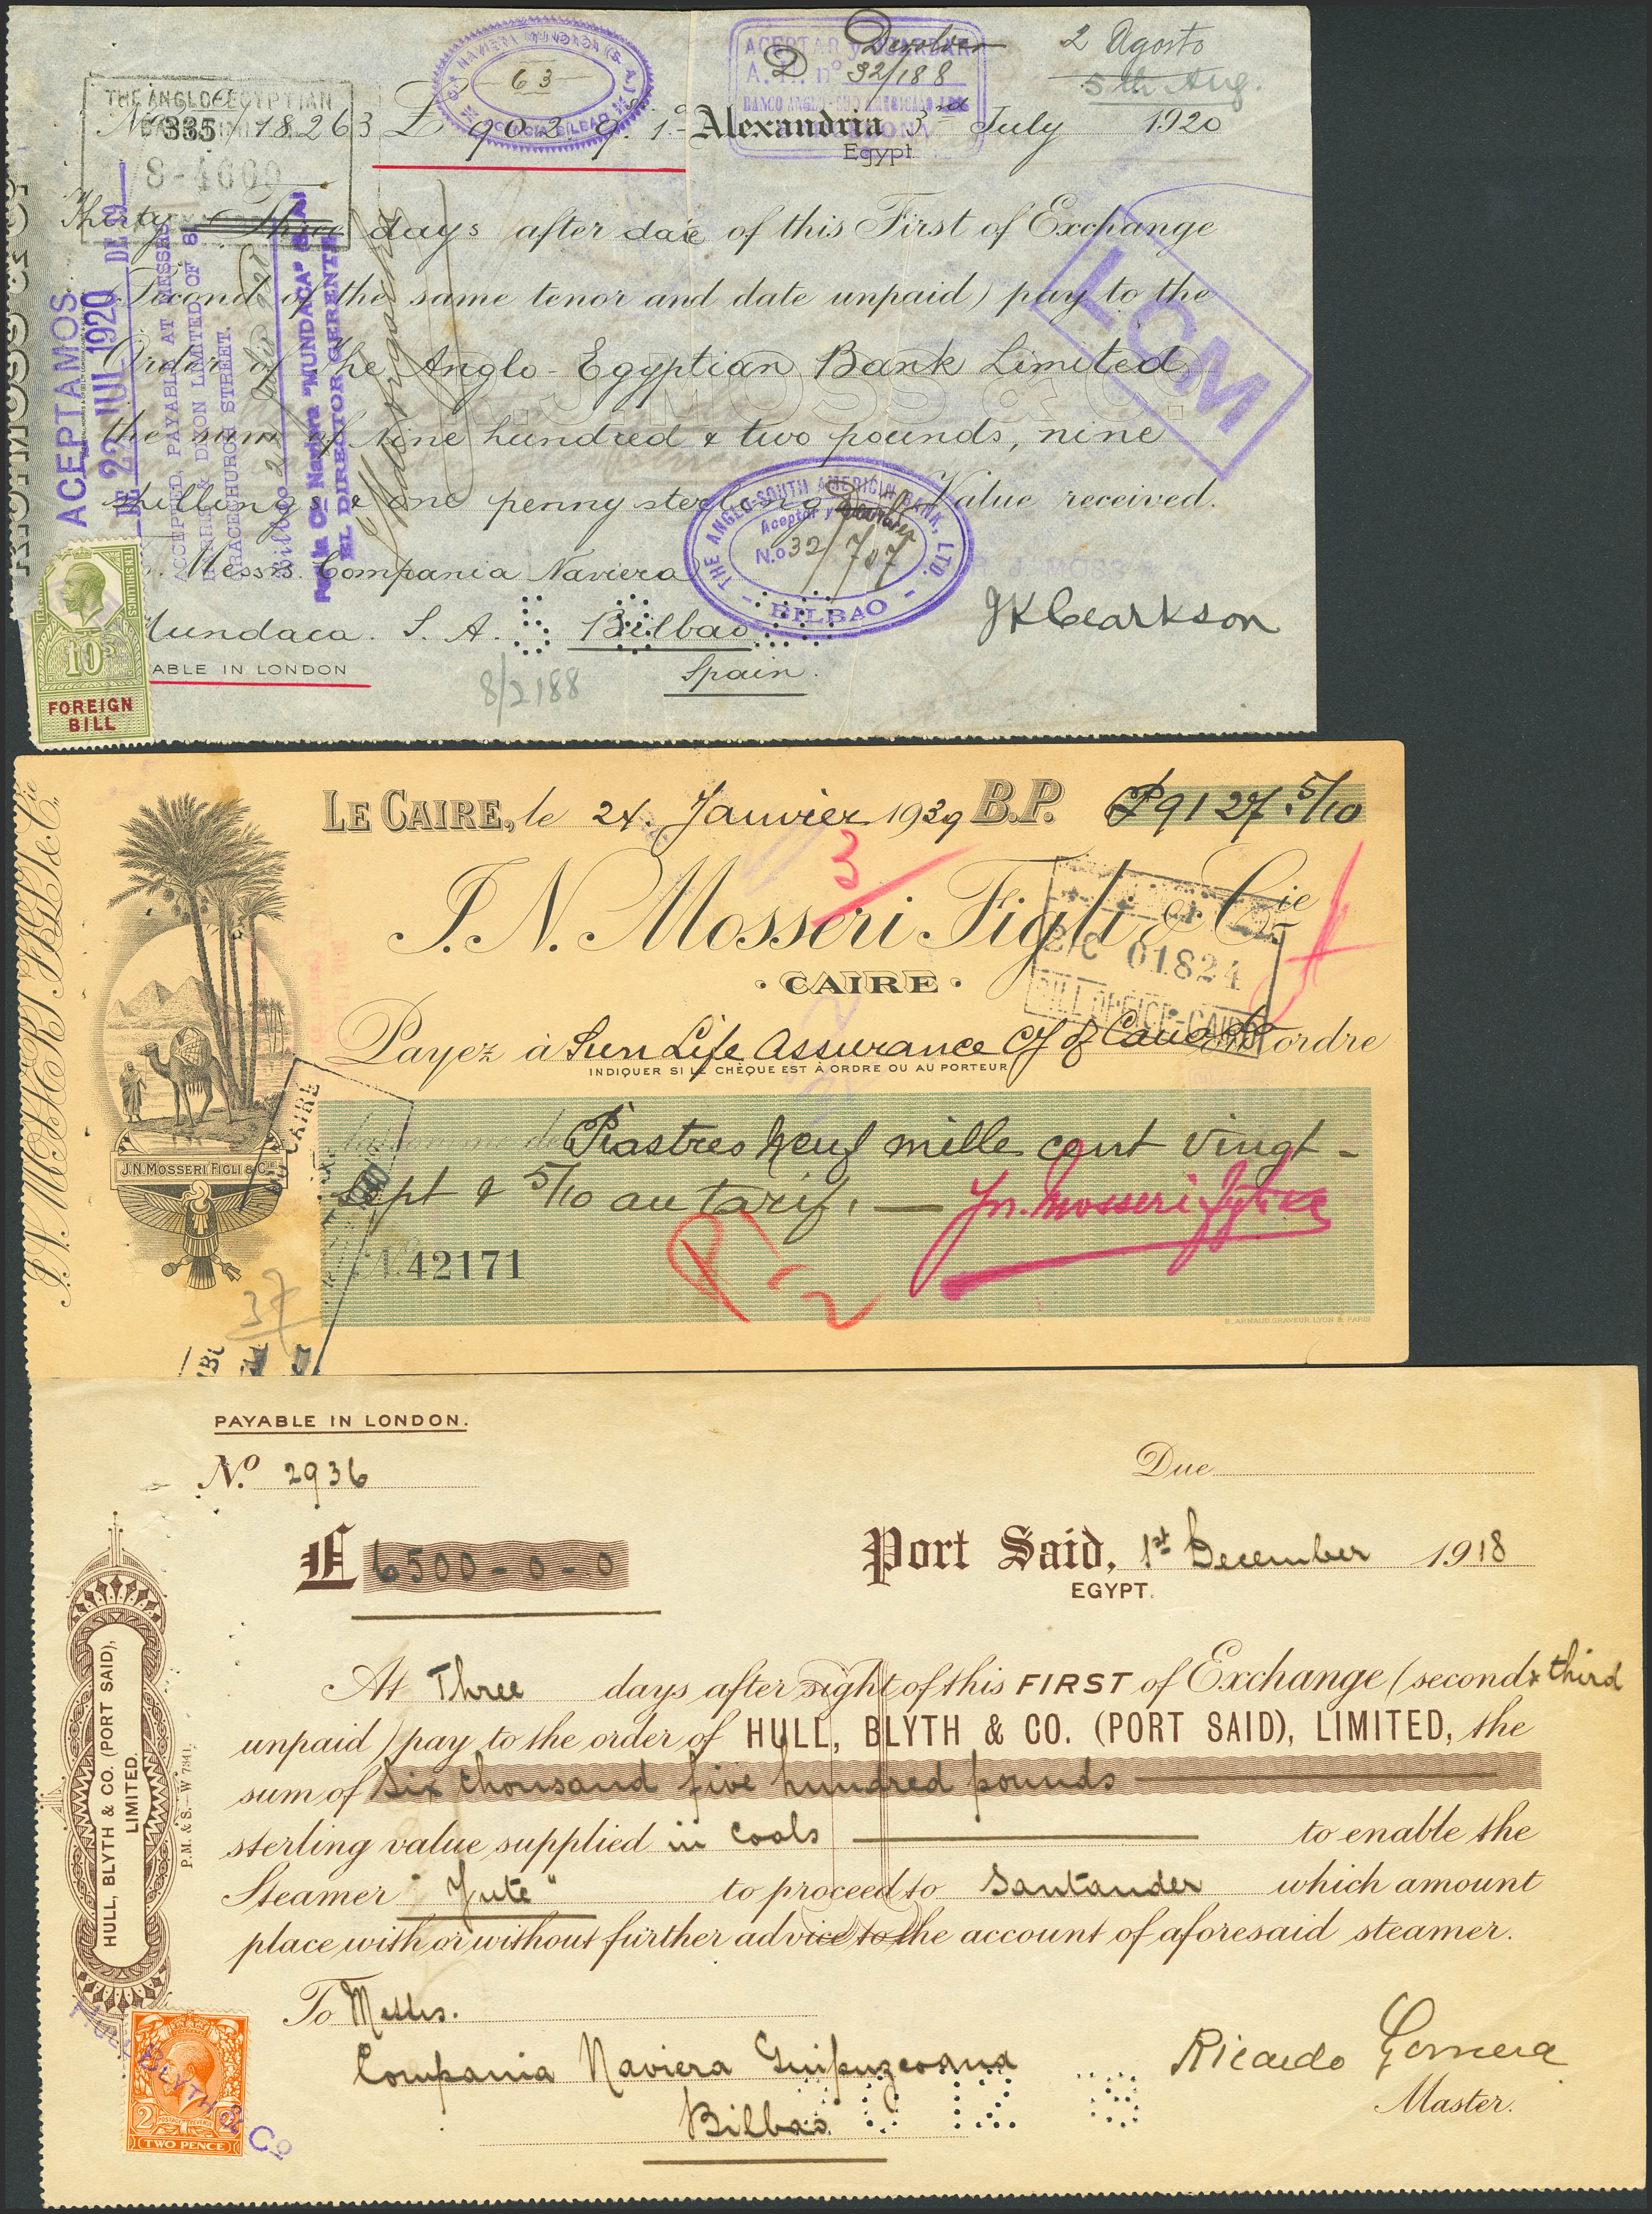 THE ANGLO-EGYPTIAN
8-4600
63
AGENCIA BILBAO
Devolver
A. n° 32/188
2 Agosto
5th Aug.
No 335/18263 £ 902. 9. 1d Alexandria 3rd July 1920
Egypt
Thirty Three days after date of this First of Exchange
Second of the same tenor and date unpaid) pay to the
Order of The Anglo-Egyptian Bank Limited
the sum of Nine hundred & two pounds, nine
shillings & one penny sterling Value received.
Messrs. Compania Naviera
Mundaca. S. A. Bilbao
Spain.
ABLE IN LONDON
8/2188
JKClearkson
R. J. MOSS & Co.
LCM
THE ANGLO-SOUTH AMERICAN BANK, LTD.
Aceptar y
No 32/707
BILBAO
ACEPTAMOS
22 JUL 1920
ACCEPTED, PAYABLE AT MESSRS
& DIXON LIMITED OF 8
GRACECHURCH STREET.
Bilbao 22 Julio
Por la Cia Naviera "MUNDACA" (S. A.)
EL DIRECTOR GERENTE
TEN SHILLINGS
10s
FOREIGN
BILL
J. N. MOSSERI FIGLI & Cie
LE CAIRE, le 24 Janvier 1939 B.P. P 9127 5/10
3
J. N. Mosseri Figli & Cie
CAIRE
B/C 01824
BILL OFFICE-CAIRO
Payez à Sun Life Assurance Cy of Canada ordre
INDIQUER SI LE CHÈQUE EST À ORDRE OU AU PORTEUR
la somme de Piastres Neuf mille cent vingt-
sept & 5/10 au tarif.
J.N. Mosseri Figli & Cie
J.N. MOSSERI FIGLI & Cie
No 42171
P1-2
37
CAIRE
B. ARNAUD, GRAVEUR, LYON & PARIS
PAYABLE IN LONDON.
No 2936
Due
£ 6500-0-0
Port Said, 1st December 1918
EGYPT.
At Three days after sight of this FIRST of Exchange (second & third
unpaid) pay to the order of HULL, BLYTH & CO. (PORT SAID), LIMITED, the
sum of Six thousand five hundred pounds
sterling value supplied in Coals to enable the
Steamer "Jute" to proceed to Santander which amount
place with or without further advice to the account of aforesaid steamer.
To Messrs.
Compania Naviera Guipuzcoana
Bilbao
Ricardo Gomera
Master.
HULL, BLYTH & CO. (PORT SAID),
LIMITED.
P.M. & S.—W 7841.
HULL BLYTH & Co
2 POSTAGE REVENUE 2
TWO PENCE